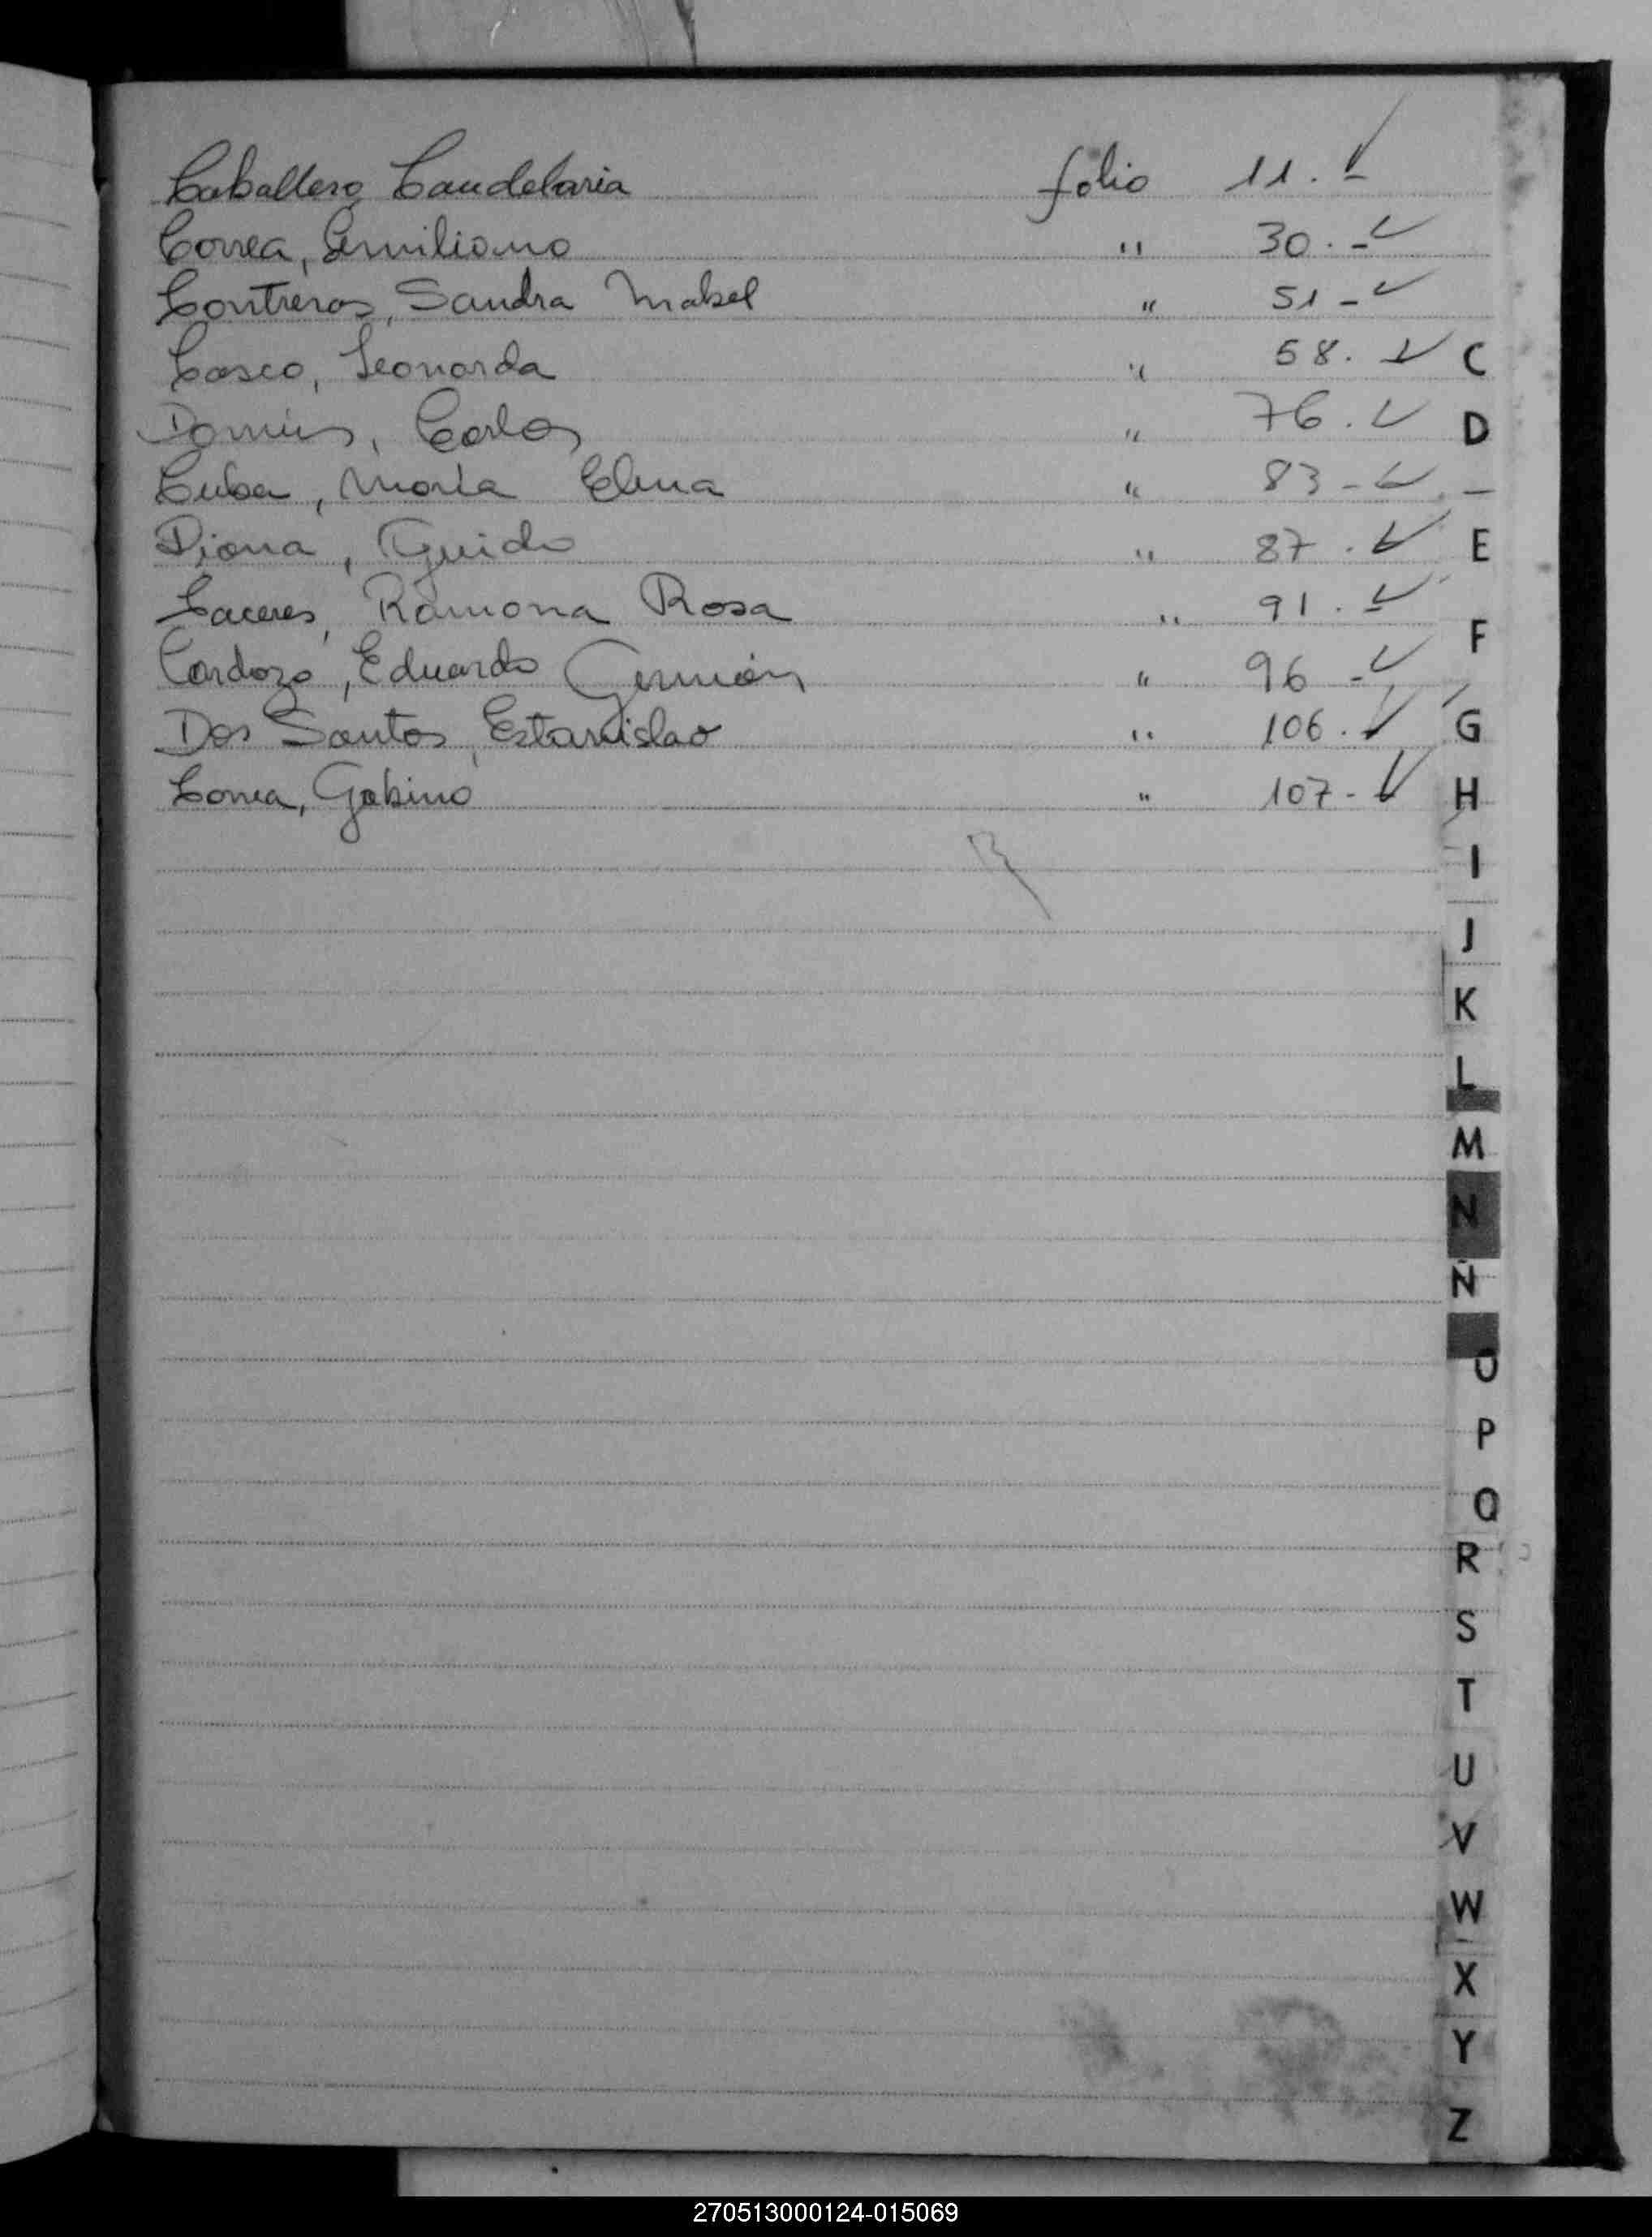 Caballero Candelaria folio 11. ✓
Correa, Emiliano " 30.- ✓
Contreras, Sandra Mabel " 51- ✓
Casco, Leonarda " 58. ✓
C
Carlos " 76. ✓
D
Cuba, María Elena " 83- ✓
Diana, Guido " 87. ✓
E
Caceres, Ramona Rosa " 91. ✓
F
Cardozo, Eduardo Germán " 96 - ✓
Dos Santos, Estanislao " 106. ✓
G
Correa, Gabino " 107- ✓
H
I
J
K
L
M
N
Ñ
O
P
Q
R
S
T
U
V
W
X
Y
Z
270513000124-015069